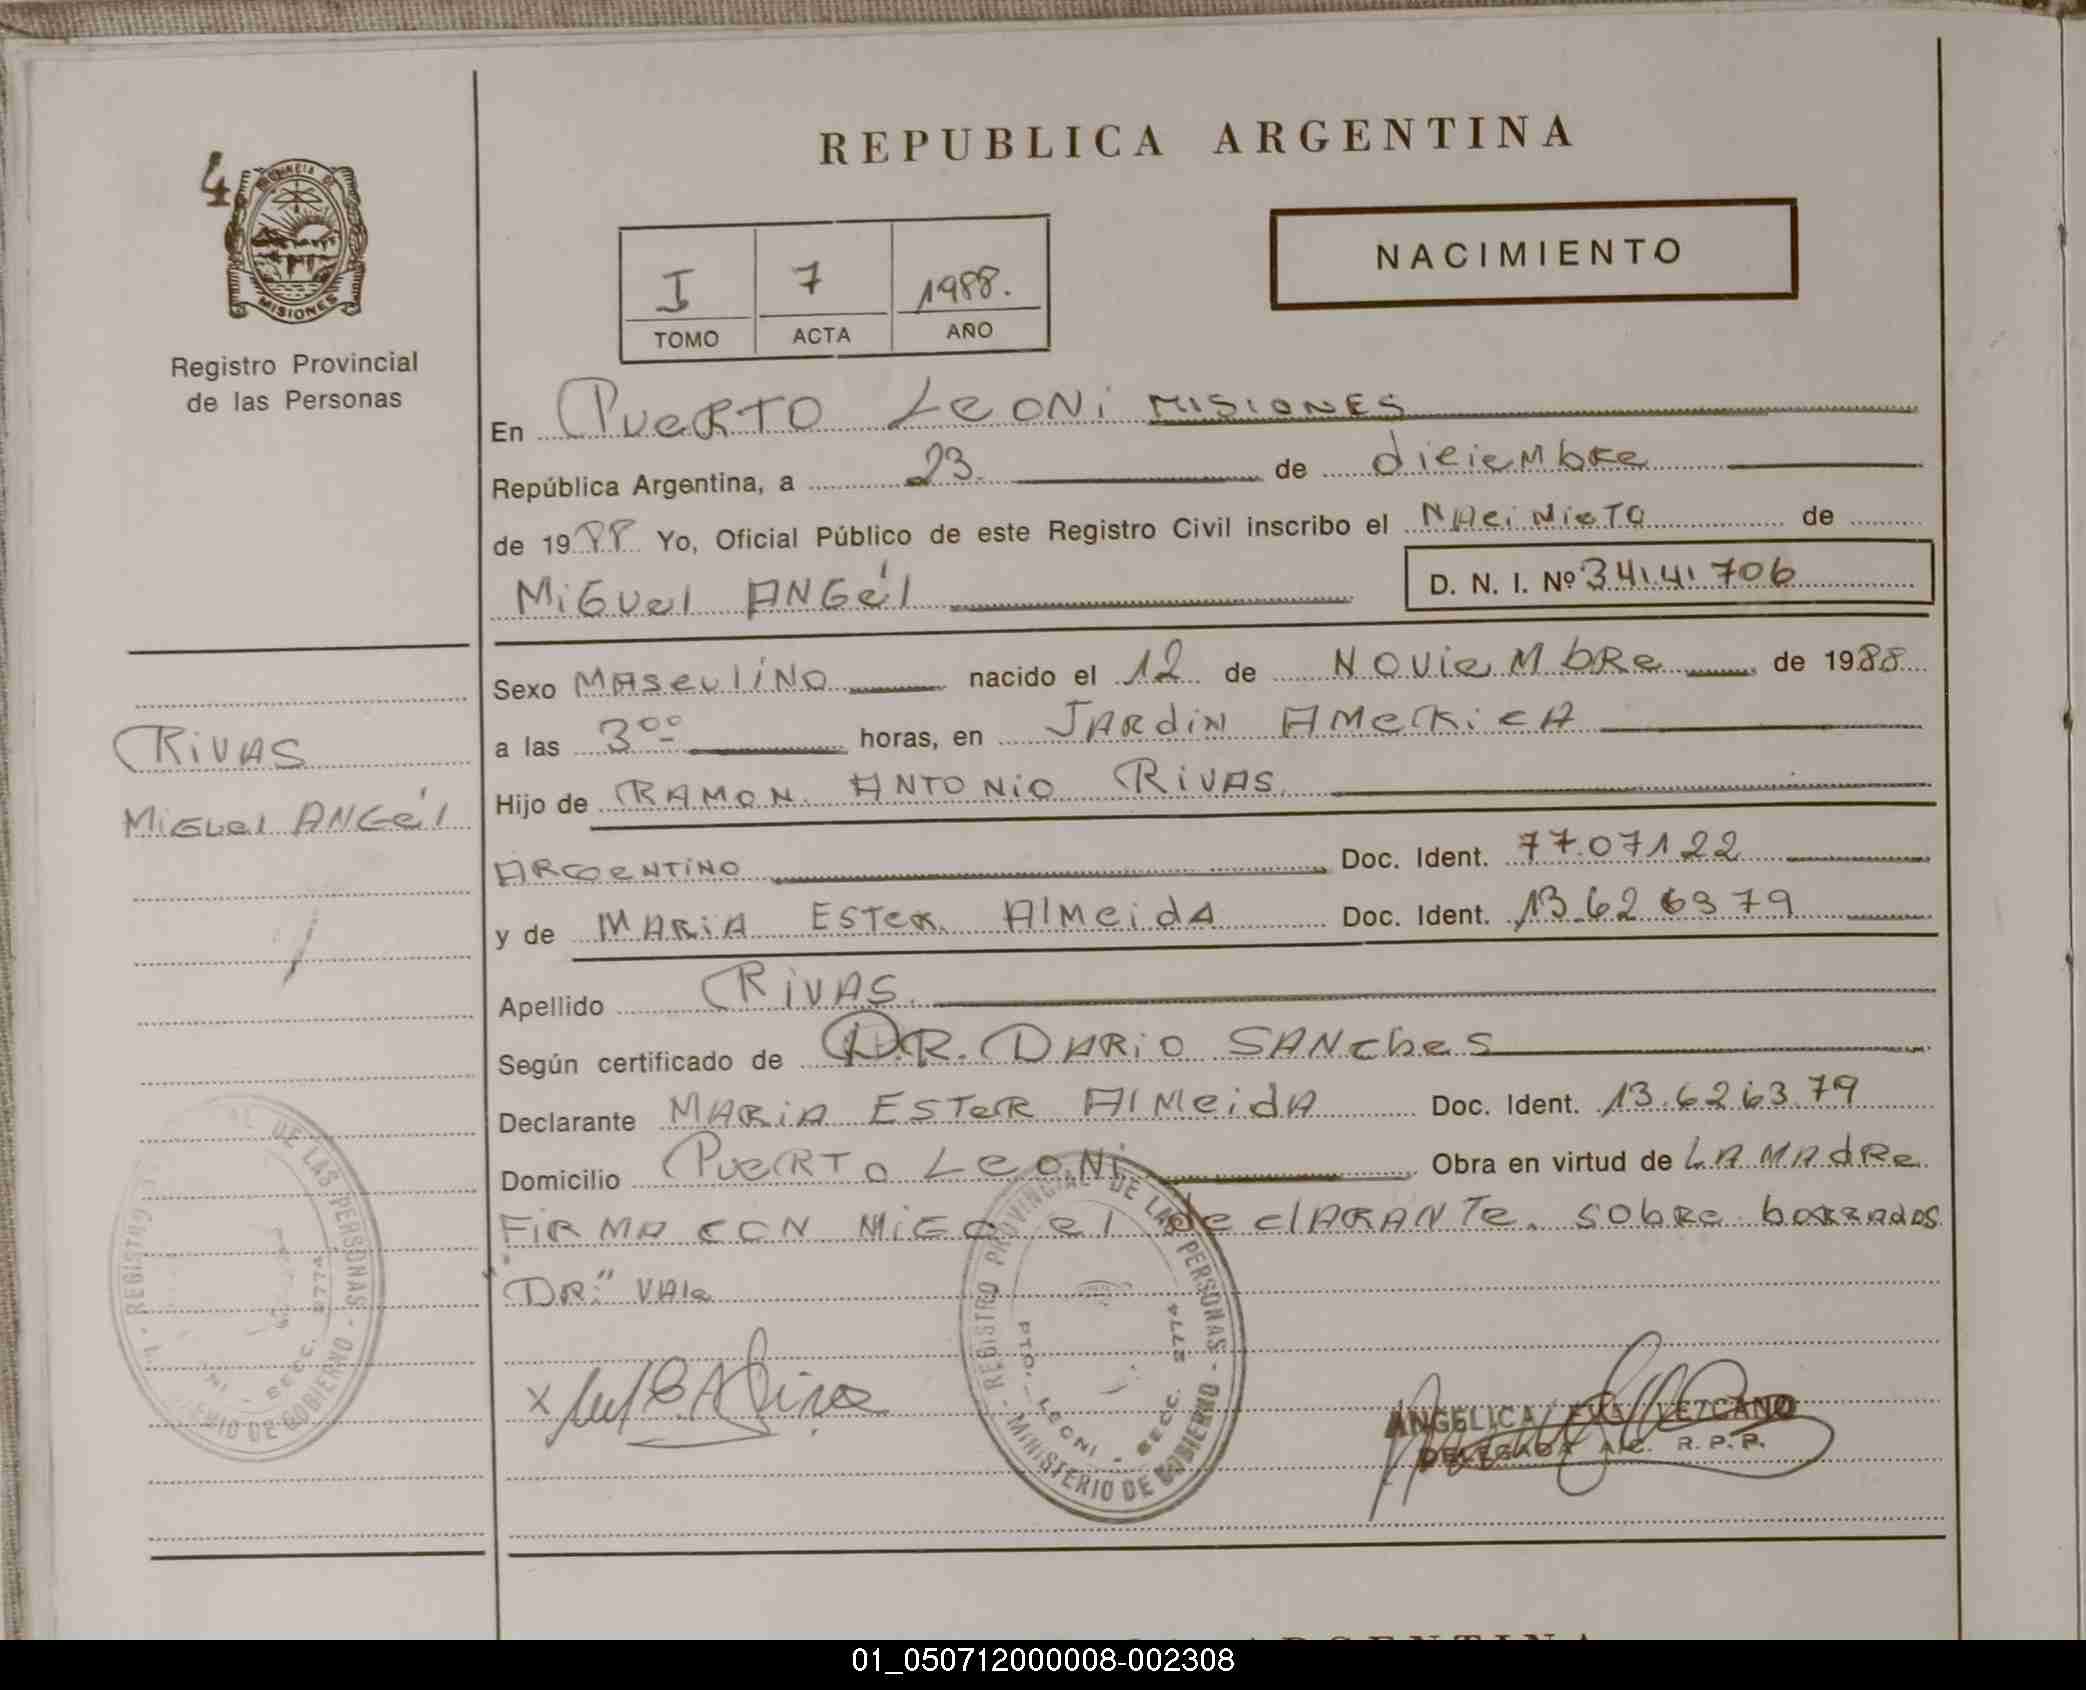 4
PROVINCIA DE
MISIONES
Registro Provincial
de las Personas
REPUBLICA ARGENTINA
NACIMIENTO
I 7 1988.
TOMO ACTA AÑO
En PUERTO LEONi MISIONES
República Argentina, a 23. de dicieMbRe
de 1988 Yo, Oficial Público de este Registro Civil inscribo el NAciMieTO de
MiGUel ANGél D. N. I. Nº 34.141.706
Sexo MAScULiNO nacido el 12 de NOVieMbRe de 1988
a las 3⁰⁰ horas, en JARdiN AMeRicA
Hijo de RAMON ANTONiO RiVAS
ARGENTiNO Doc. Ident. 7707122
y de MARiA ESTeR AlMeidA Doc. Ident. 13.626379
Apellido RiVAS.
Según certificado de DR. DARiO SANcheS
Declarante MARiA ESTeR AlMeidA Doc. Ident. 13.626379
Domicilio PUeRTo LeONi Obra en virtud de LA MAdRe
FiRMA CON MiGO el declARANTe. sobRe boRRAdos
"DR." VAle
RiVAS
MiGUel ANGél
REGISTRO PROVINCIAL DE LAS PERSONAS - MINISTERIO DE GOBIERNO -
PTO. LEONI - SECC. 2774
DE LAS PERSONAS
DE GOBIERNO
REGISTRO
SECC. 2774
x
ANGELICA LEZCANO
DELEGADA R. P. P.
01_050712000008-002308